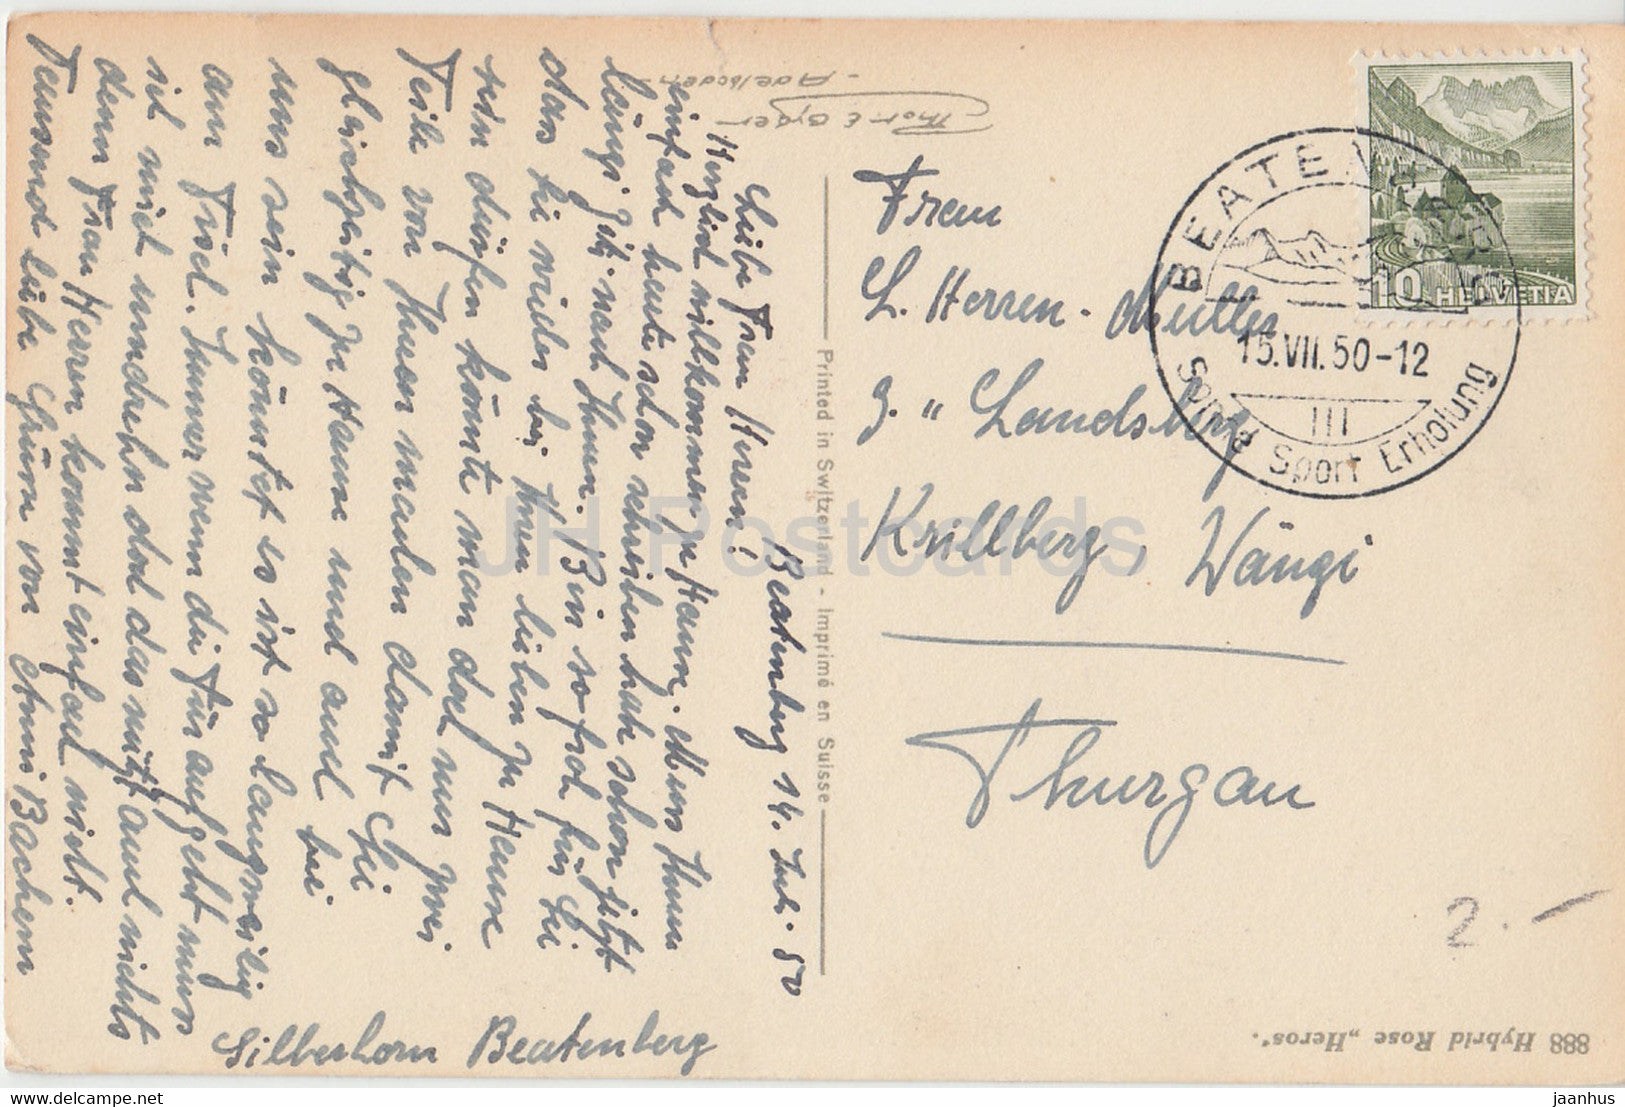 Beatenberg 14. Juli. 50
Liebe Frau Herren!
Herzlich willkommen zu Hause. Muss Ihnen
einfach heute schon schreiben hab schon jetzt
längi Zit nach Ihnen. Bin so froh für Sie
das Sie wieder bei Ihren lieben zu Hause
sein dürfen könnte man doch nur zwei
Teile von Ihnen machen damit Sie
gleichzeitig zu Hause und auch bei
uns sein könnten so ist so langweilig
am Tisch. Immer wenn die Tür aufgeht muss
ich mich umdrehn doch das nützt auch nichts
denn Frau Herren kommt einfach nicht.
Tausend liebe Grüsse von Anni Bachem
Silberhorn Beatenberg
Thor E Gyger
- Adelboden -
Printed in Switzerland - Imprimé en Suisse
Frau
L. Herren-Müller
z. " Landsberg
Krillberg, Wängi
Thurgau
BEATENBERG
15.VII.50-12
III
Sonne Sport Erholung
10 HELVETIA
2.-
888 Hybrid Rose „Heros".
JH Postcards
delcampe.net
jaanhus